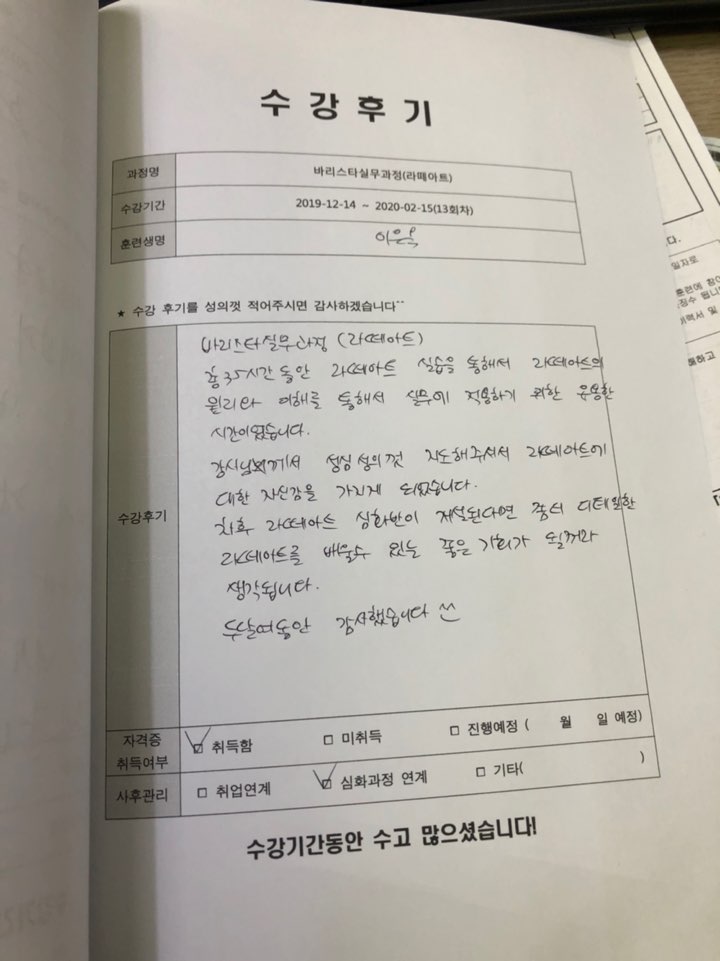 수강후기
과정명 바리스타실무과정(라떼아트)
수강기간 2019-12-14 ~ 2020-02-15(13회차)
훈련생명 이
★ 수강 후기를 성의껏 적어주시면 감사하겠습니다^^
수강후기
바리스타실무과정 (라떼아트)
총 35시간 동안 라떼아트 실습을 통해서 라떼아트의
원리와 이해를 통해서 실무에 적용하기 위한 유용한
시간이었습니다.
강사님께서 성심성의껏 지도해주셔서 라떼아트에
대한 자신감을 가지게 되었습니다.
차후 라떼아트 심화반이 개설된다면 좀더 디테일한
라떼아트를 배울수 있는 좋은 기회가 될꺼라
생각됩니다.
두달여동안 감사했습니다
자격증 취득여부 ☑ 취득함 □ 미취득 □ 진행예정 ( 월 일 예정)
사후관리 □ 취업연계 ☑ 심화과정 연계 □ 기타( )
수강기간동안 수고 많으셨습니다!
다.
일자로
훈련에 참여
및